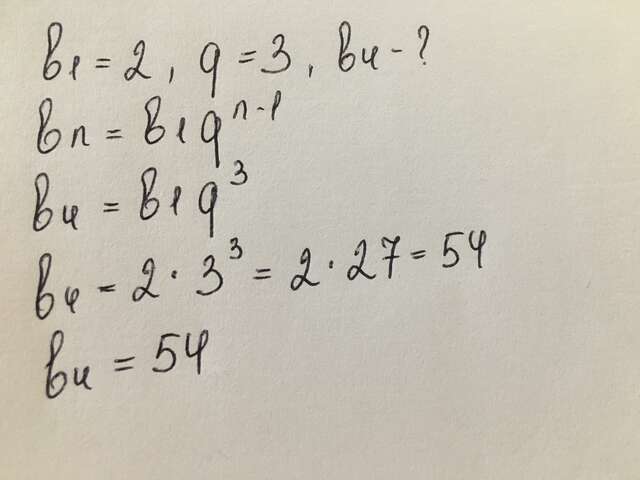 b₁ = 2, q = 3, b₄ - ?
bₙ = b₁qⁿ⁻¹
b₄ = b₁q³
b₄ = 2 · 3³ = 2 · 27 = 54
b₄ = 54